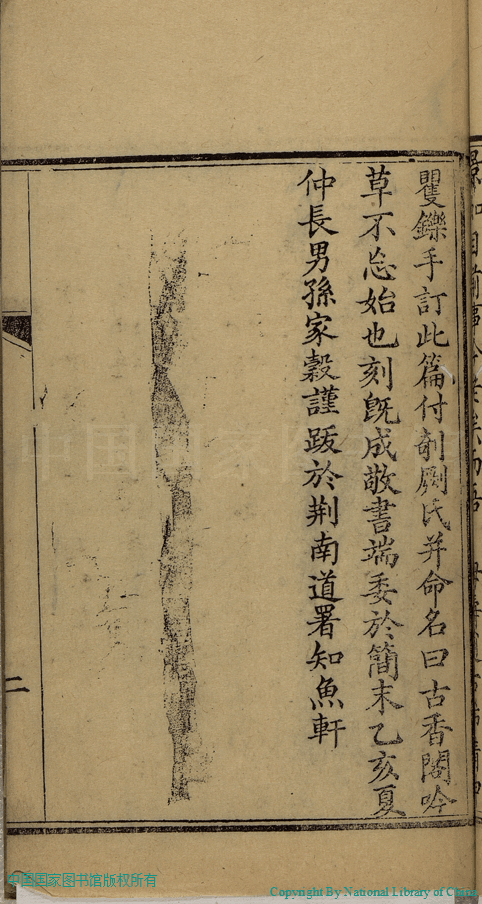 矍鑠手訂此篇付剞劂氏并命名曰古香閣吟
草不忘始也刻既成敬書端委於簡末乙亥夏
仲長男孫家穀謹跋於荆南道署知魚軒
二
中国国家图书馆版权所有
Copyright By National Library of China